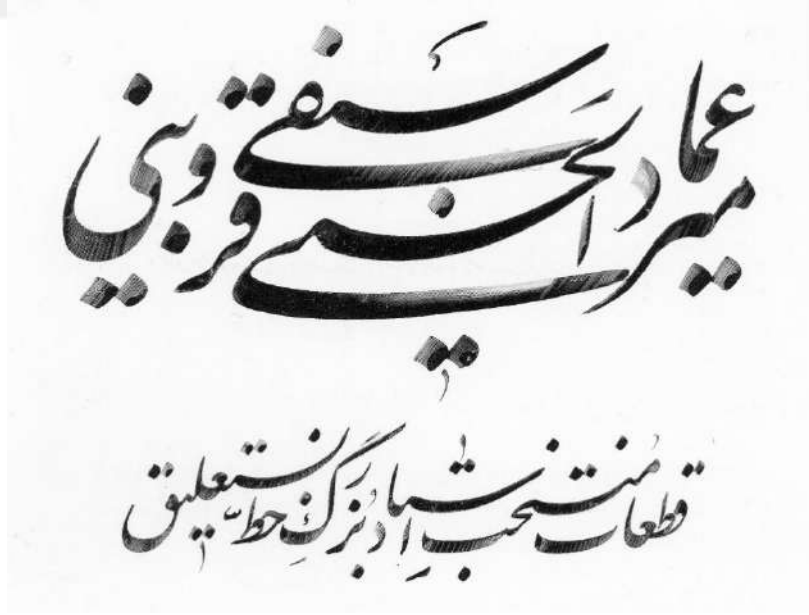 میرعماد الحسنی سیفی قزوینی
قطعات منتخب استاد بزرگ خط نستعلیق